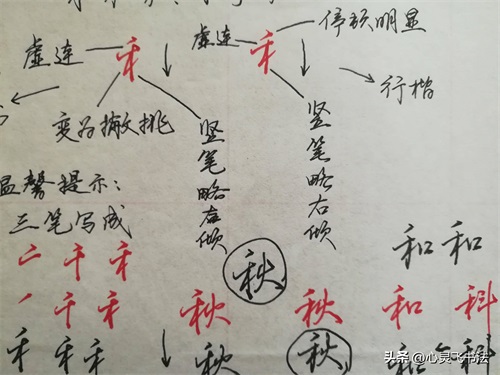 停顿明显
虚连 禾 虚连 禾
行楷
变为撇挑
竖笔略右倾
竖笔略右倾
温馨提示:
三笔写成
和 和
秋
二 千 禾
丿 千 禾 秋 秋 和 科
禾 禾 禾 秋 秋 和 科
头条 @心灵飞书法